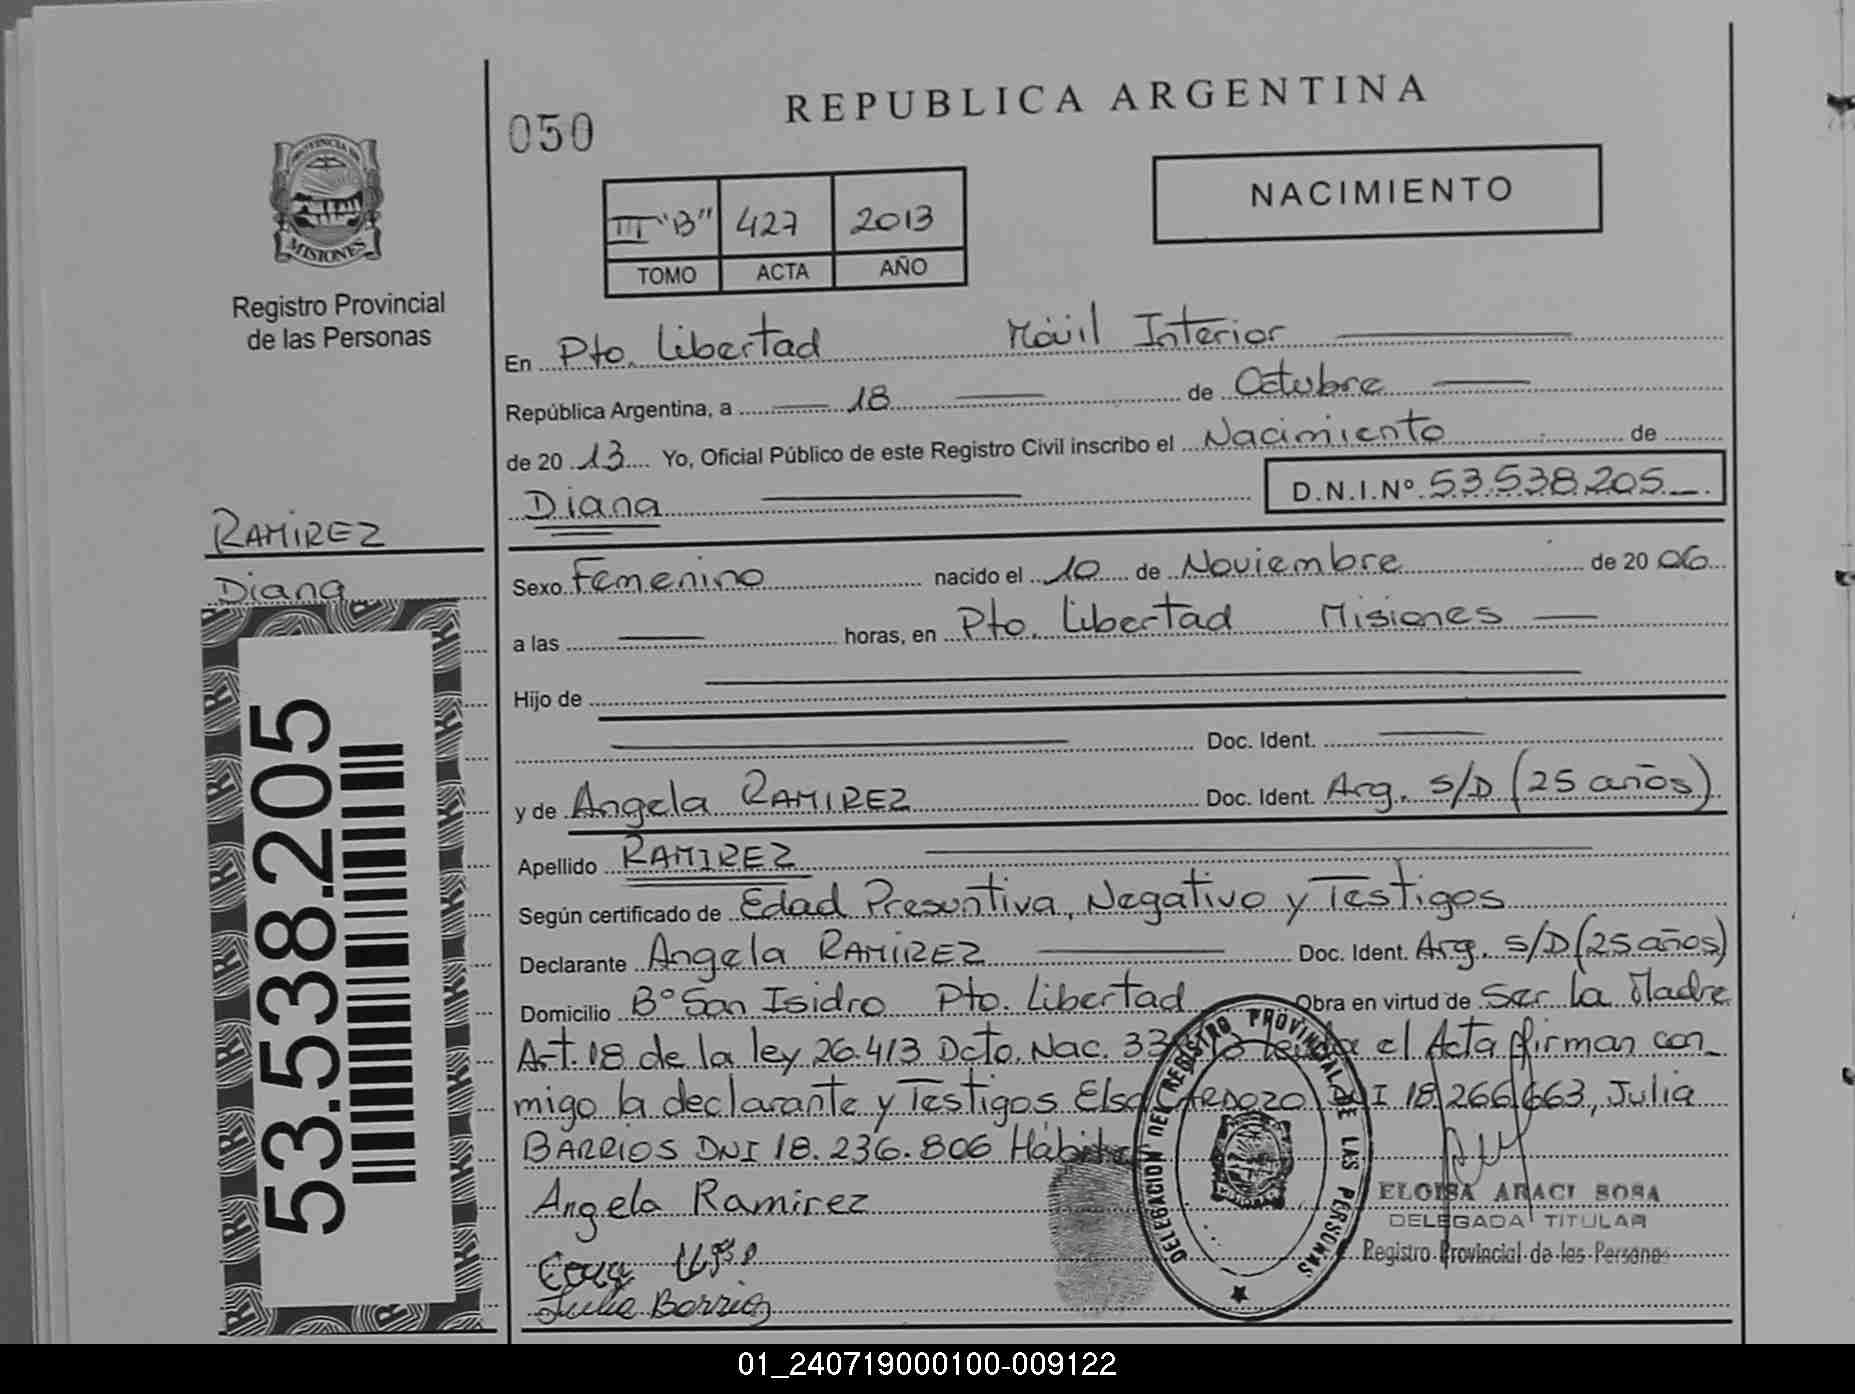 REPUBLICA ARGENTINA
050
NACIMIENTO
III "B" 427 2013
TOMO ACTA AÑO
PROVINCIA DE
MISIONES
Registro Provincial
de las Personas
En Pto. Libertad Móvil Interior
República Argentina, a 18 de Octubre
de 2013 Yo, Oficial Público de este Registro Civil inscribo el Nacimiento de
Diana D.N.I.Nº 53.538.205
RAMIREZ
Diana
53.538.205
Sexo Femenino nacido el 10 de Noviembre de 2006
a las horas, en Pto. Libertad Misiones
Hijo de
Doc. Ident.
y de Angela RAMIREZ Doc. Ident. Arg. S/D (25 años)
Apellido RAMIREZ
Según certificado de Edad Presuntiva, Negativo y Testigos
Declarante Angela RAMIREZ Doc. Ident. Arg. S/D (25 años)
Domicilio Bº San Isidro Pto. Libertad Obra en virtud de Ser la Madre
Art. 18 de la ley 26.413 Dcto. Nac. el Acta firman con
migo la declarante y Testigos Elsa CARDOZO DNI 18.266.663, Julia
BARRIOS DNI 18.236.806
Angela Ramirez
Julia Barrios
DELEGACION DEL REGISTRO PROVINCIAL DE LAS PERSONAS
ELOISA ARACI SOSA
DELEGADA TITULAR
Registro Provincial de las Personas
01_240719000100-009122